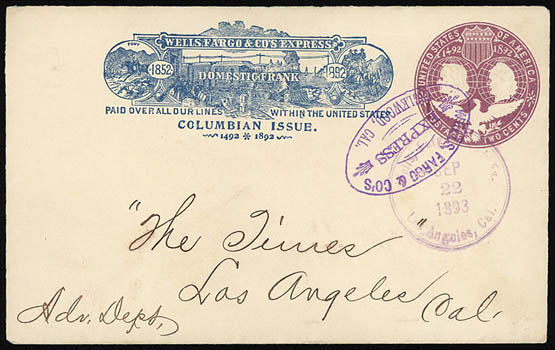 WELLS FARGO & CO'S EXPRESS
1852 DOMESTIC FRANK 1892
PAID OVER ALL OUR LINES WITHIN THE UNITED STATES
COLUMBIAN ISSUE.
1492 * 1892
UNITED STATES OF AMERICA
1492 1892
POSTAGE TWO CENTS
WELLS FARGO & CO'S
EXPRESS
CAL.
SEP
22
1893
Los Angeles, Cal.
"The Times"
Los Angeles
Cal.
Adv. Dept.